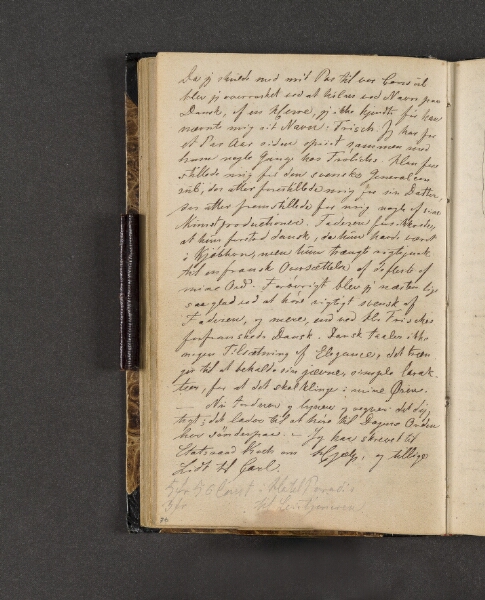 Da jeg skulde med mit Pas til vor Consul
blev jeg overrasket ved at hilses ved Navn paa
Dansk, af en Herre, jeg ikke kjendte, før han
nævnte mig sit Navn: Frisch. Jeg har for
et Par Aar siden spiist sammen med
ham nogle Gange hos Tutein. Han fore
stillede mig for den svenske Generalcon
sul, der atter forestillede mig for sin Datter,
der atter fremstillede for mig nogle af sine
Kunstproductioner. Faderen
at hun forstod dansk, da hun havde været
i Kjøbhavn, men hun trængte rigtignok
til en fransk Oversættelse af de fleste af
mine Ord. Forøvrigt blev jeg næsten lige
saa glad ved at høre rigtigt svensk af
Faderen, og mere, end ved Hr. Frisches
forfranskede Dansk. Dansk taaler ikke
nogen Tilsætning af Elegance; det træn
ger til at beholde sin jævne, simple Karak
teer, for at det skal klinge i mine Øren.
— Nu tordner og lyner og regner det dyg
tigt; det lader til at høre til Dagens Orden
her søndenfore. — Jeg har skrevet til
Etatsraad Koch om Hjælp, og tillige
lidt til Carl.
5 fr 55 Cent i Hotel
3 fr til